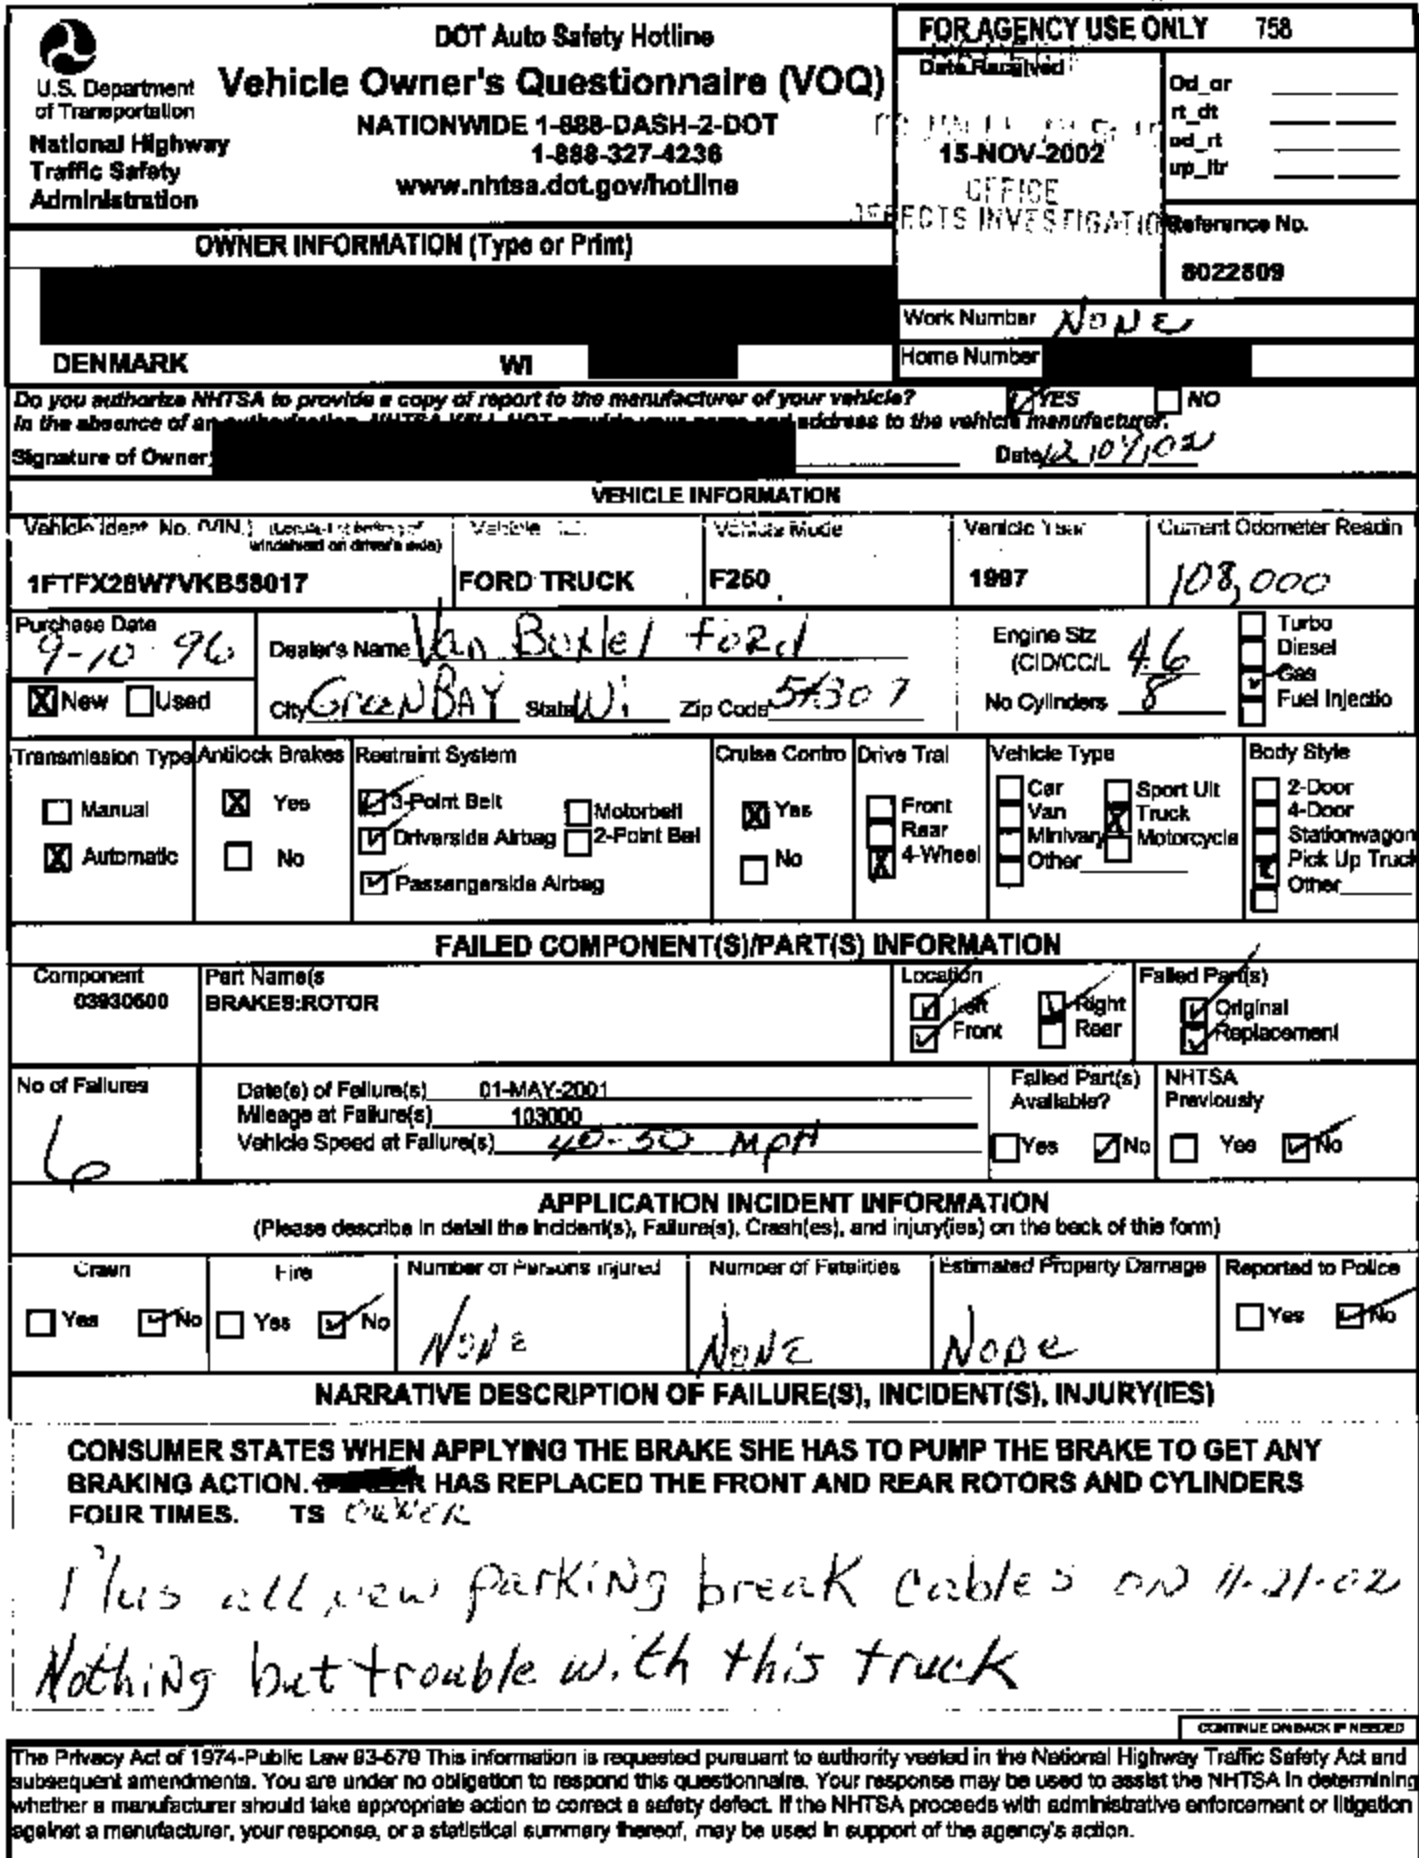 DOT Auto Safety Hotline
Vehicle Owner's Questionnaire (VOQ)
NATIONWIDE 1-888-DASH-2-DOT
1-888-327-4236
www.nhtsa.dot.gov/hotline
U.S. Department
of Transportation
National Highway
Traffic Safety
Administration
FOR AGENCY USE ONLY 758
Date Received
15-NOV-2002
OFFICE
DEFECTS INVESTIGATION
Od_or
rt_dt
od_rt
up_ltr
Reference No.
8022809
OWNER INFORMATION (Type or Print)
DENMARK WI
Work Number NONE
Home Number
Do you authorize NHTSA to provide a copy of report to the manufacturer of your vehicle? YES NO
In the absence of an address to the vehicle manufacturer.
Signature of Owner Date 12/04/02
VEHICLE INFORMATION
Vehicle Ident. No. (VIN.) Vehicle Vehicle Mode Vehicle Year Current Odometer Readin
windshield on driver's side)
1FTFX28W7VKB58017 FORD TRUCK F250 1997 108,000
Purchase Date
9-10 96
New Used
Dealer's Name Van Boxlel Ford
City Green BAY State Wi Zip Code 54307
Engine Siz
(CID/CC/L 4.6
No Cylinders 8
Turbo
Diesel
Gas
Fuel Injectio
Transmission Type
Manual
Automatic
Antilock Brakes
Yes
No
Restraint System
3-Point Belt
Driverside Airbag
Passengerside Airbag
Motorbelt
2-Point Bel
Cruise Contro
Yes
No
Drive Trai
Front
Rear
4-Wheel
Vehicle Type
Car
Van
Minivan
Other
Sport Ult
Truck
Motorcycle
Body Style
2-Door
4-Door
Stationwagon
Pick Up Truck
Other
FAILED COMPONENT(S)/PART(S) INFORMATION
Component
03930600
Part Name(s
BRAKES:ROTOR
Location
Left Right
Front Rear
Failed Part(s)
Original
Replacement
No of Failures
6
Date(s) of Failure(s) 01-MAY-2001
Mileage at Failure(s) 103000
Vehicle Speed at Failure(s) 40-50 MPH
Failed Part(s)
Available?
Yes No
NHTSA
Previously
Yes No
APPLICATION INCIDENT INFORMATION
(Please describe in detail the Incident(s), Failure(s), Crash(es), and injury(ies) on the back of this form)
Crash
Yes No
Fire
Yes No
Number of Persons Injured
NONE
Number of Fatalities
NONE
Estimated Property Damage
None
Reported to Police
Yes No
NARRATIVE DESCRIPTION OF FAILURE(S), INCIDENT(S), INJURY(IES)
CONSUMER STATES WHEN APPLYING THE BRAKE SHE HAS TO PUMP THE BRAKE TO GET ANY
BRAKING ACTION. HAS REPLACED THE FRONT AND REAR ROTORS AND CYLINDERS
FOUR TIMES. TS OWNER
Plus all new parking break cables on 11-21-02
Nothing but trouble with this truck
CONTINUE ON BACK IF NEEDED
The Privacy Act of 1974-Public Law 93-579 This information is requested pursuant to authority vested in the National Highway Traffic Safety Act and
subsequent amendments. You are under no obligation to respond this questionnaire. Your response may be used to assist the NHTSA in determining
whether a manufacturer should take appropriate action to correct a safety defect. If the NHTSA proceeds with administrative enforcement or litigation
against a manufacturer, your response, or a statistical summary thereof, may be used in support of the agency's action.